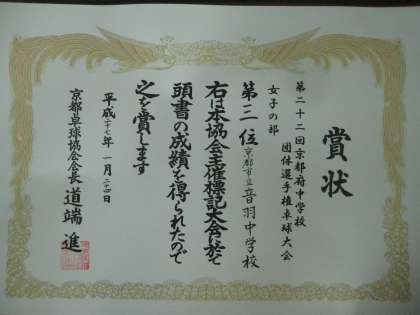 賞状
第二十二回京都府中学校
団体選手権卓球大会
女子の部
第三位
京都市立音羽中学校
右は本協会主催標記大会に於て
頭書の成績を得られたので
之を賞します
平成二十七年一月二十四日
京都卓球協会会長 道端 進